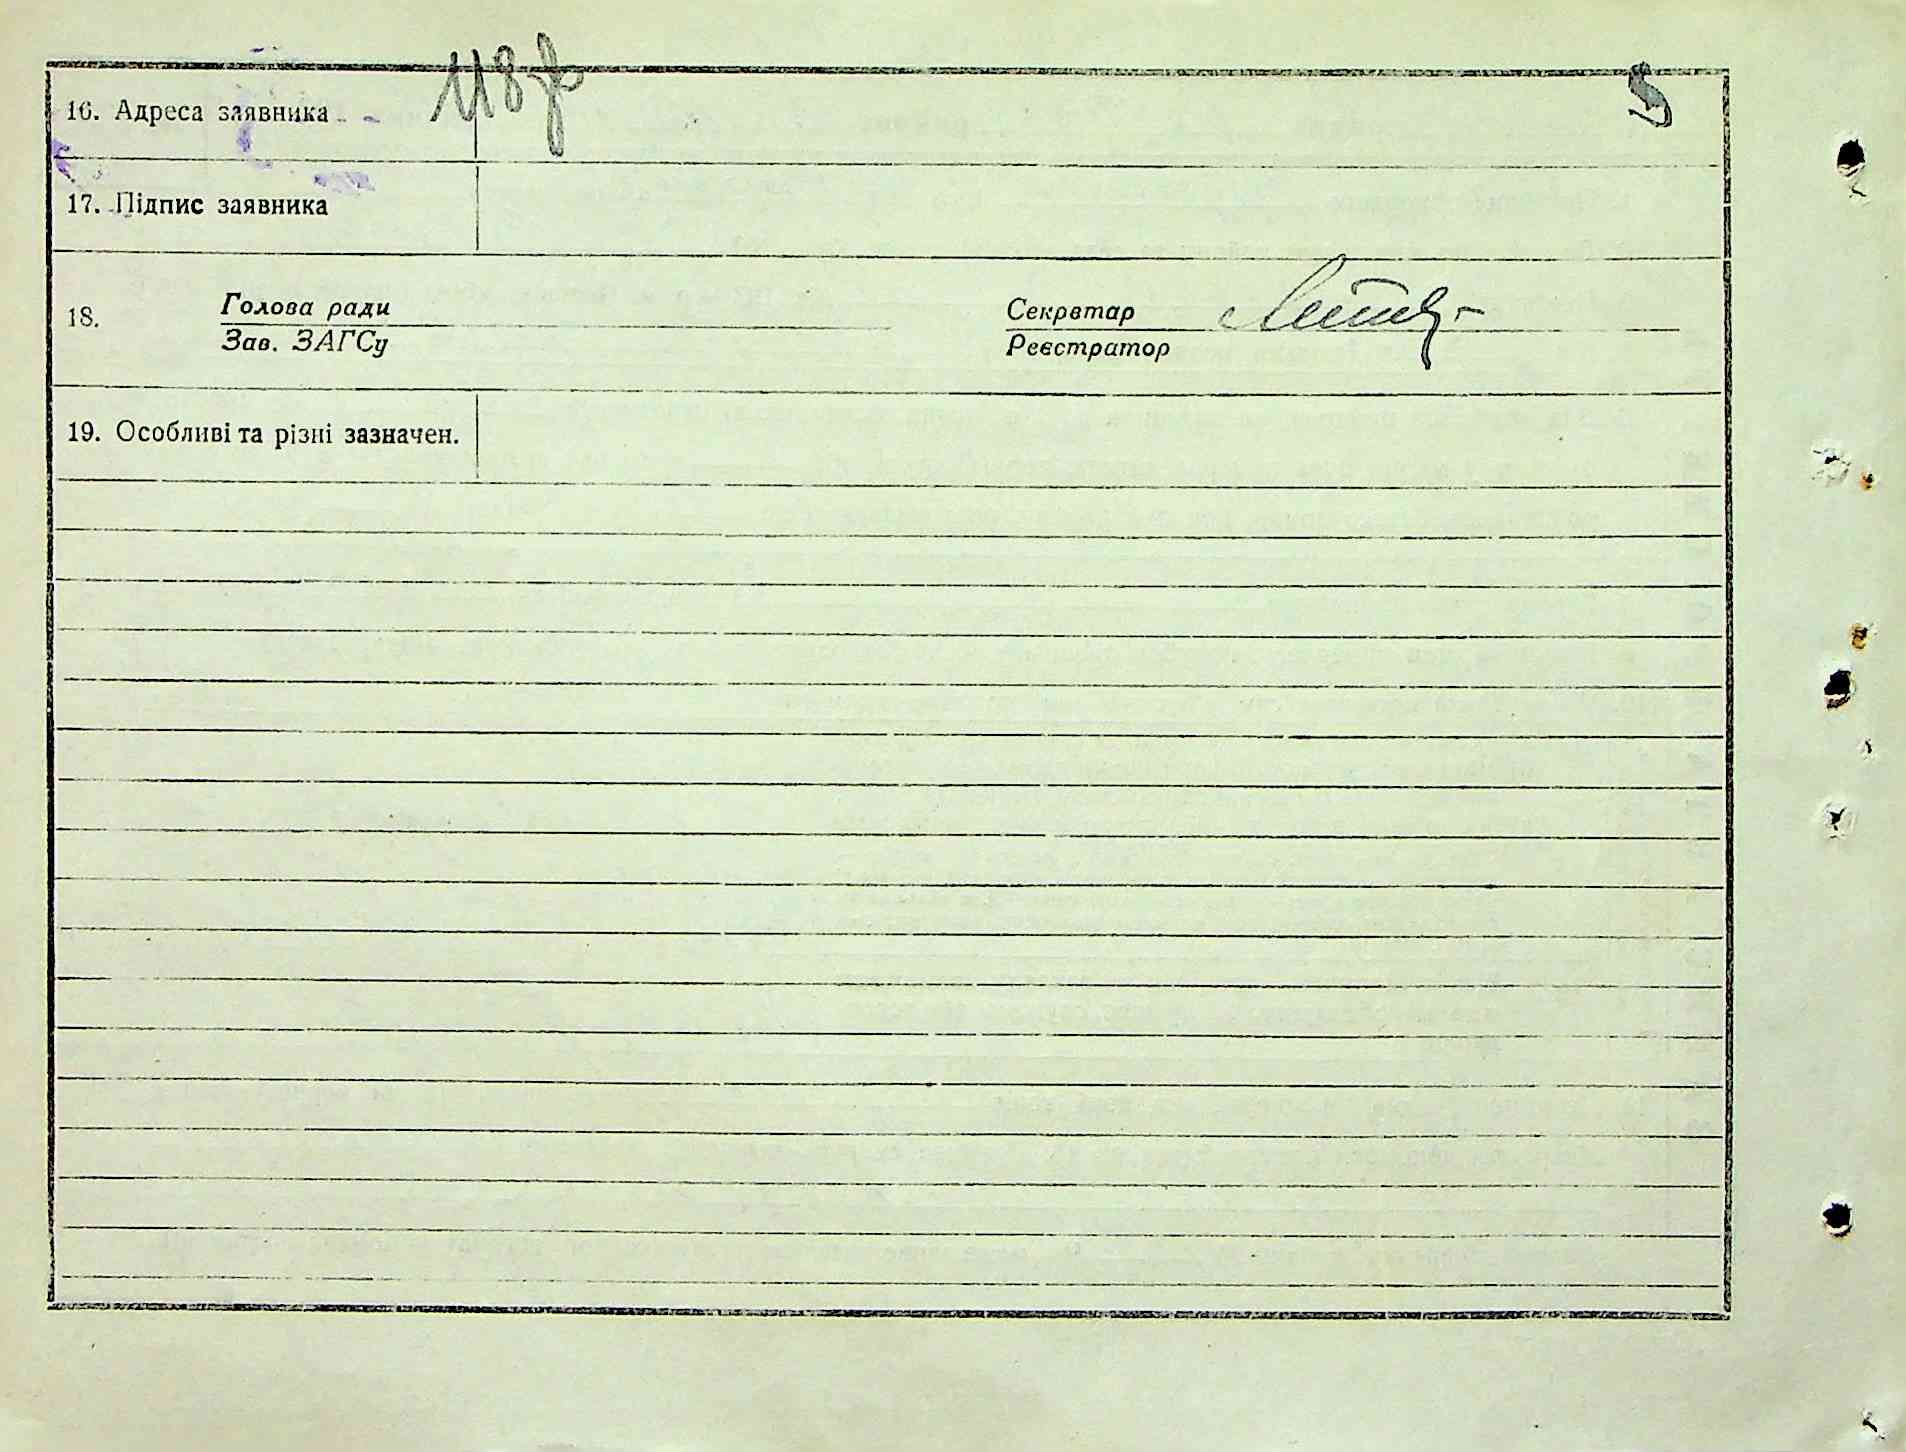 118
16. Адреса заявника
17. Підпис заявника
18. Голова ради Секретар
Зав. ЗАГСу Реєстратор
19. Особливі та різні зазначен.